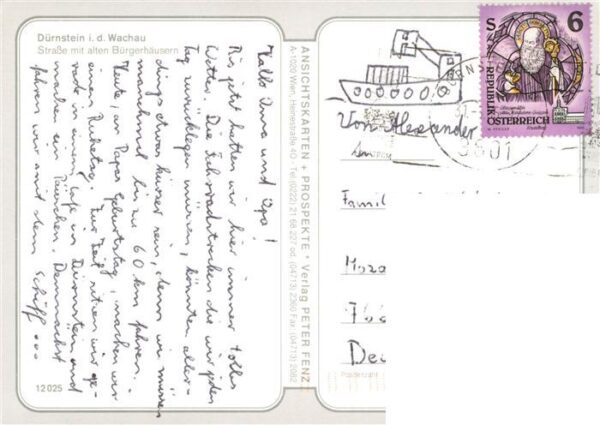 Dürnstein i. d. Wachau
Straße mit alten Bürgerhäusern
Hallo Oma und Opa!
Bis jetzt hatten wir hier immer tolles
Wetter. Die Fahrradstrecken die wir jeden
Tag zurücklegen müssen, könnten aller-
dings etwas kürzer sein, denn wir müssen
manchmal bis zu 60 km fahren.
Heute, an Papas Geburtstag, machen wir
einen Ruhetag. Zur Zeit sitzen wir ge-
rade in einem Café in Dürnstein und
machen ein Päuschen. Demnächst
fahren wir mit dem Schiff...
12 025
ANSICHTSKARTEN + PROSPEKTE * Verlag PETER FENZ
A-1020 Wien, Heinestraße 40 · Tel. (0222) 21 68 227 od. (04713) 2360 Fax: (04713) 2082
S 6
REPUBLIK
ÖSTERREICH
3601
Von Alexander
Famil
Moza
Deu
Postleitzahl